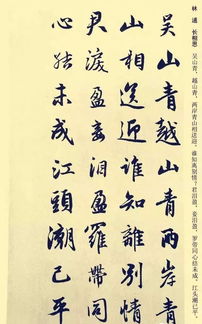 林 逋 长相思 吴山青，越山青，两岸青山相送迎，谁知离别情？君泪盈，妾泪盈，罗带同心结未成，江头潮已平。
吳山青越山青兩岸青
山相送迎誰知離別情
君淚盈妾泪盈羅帶同
心結未成江頭潮已平